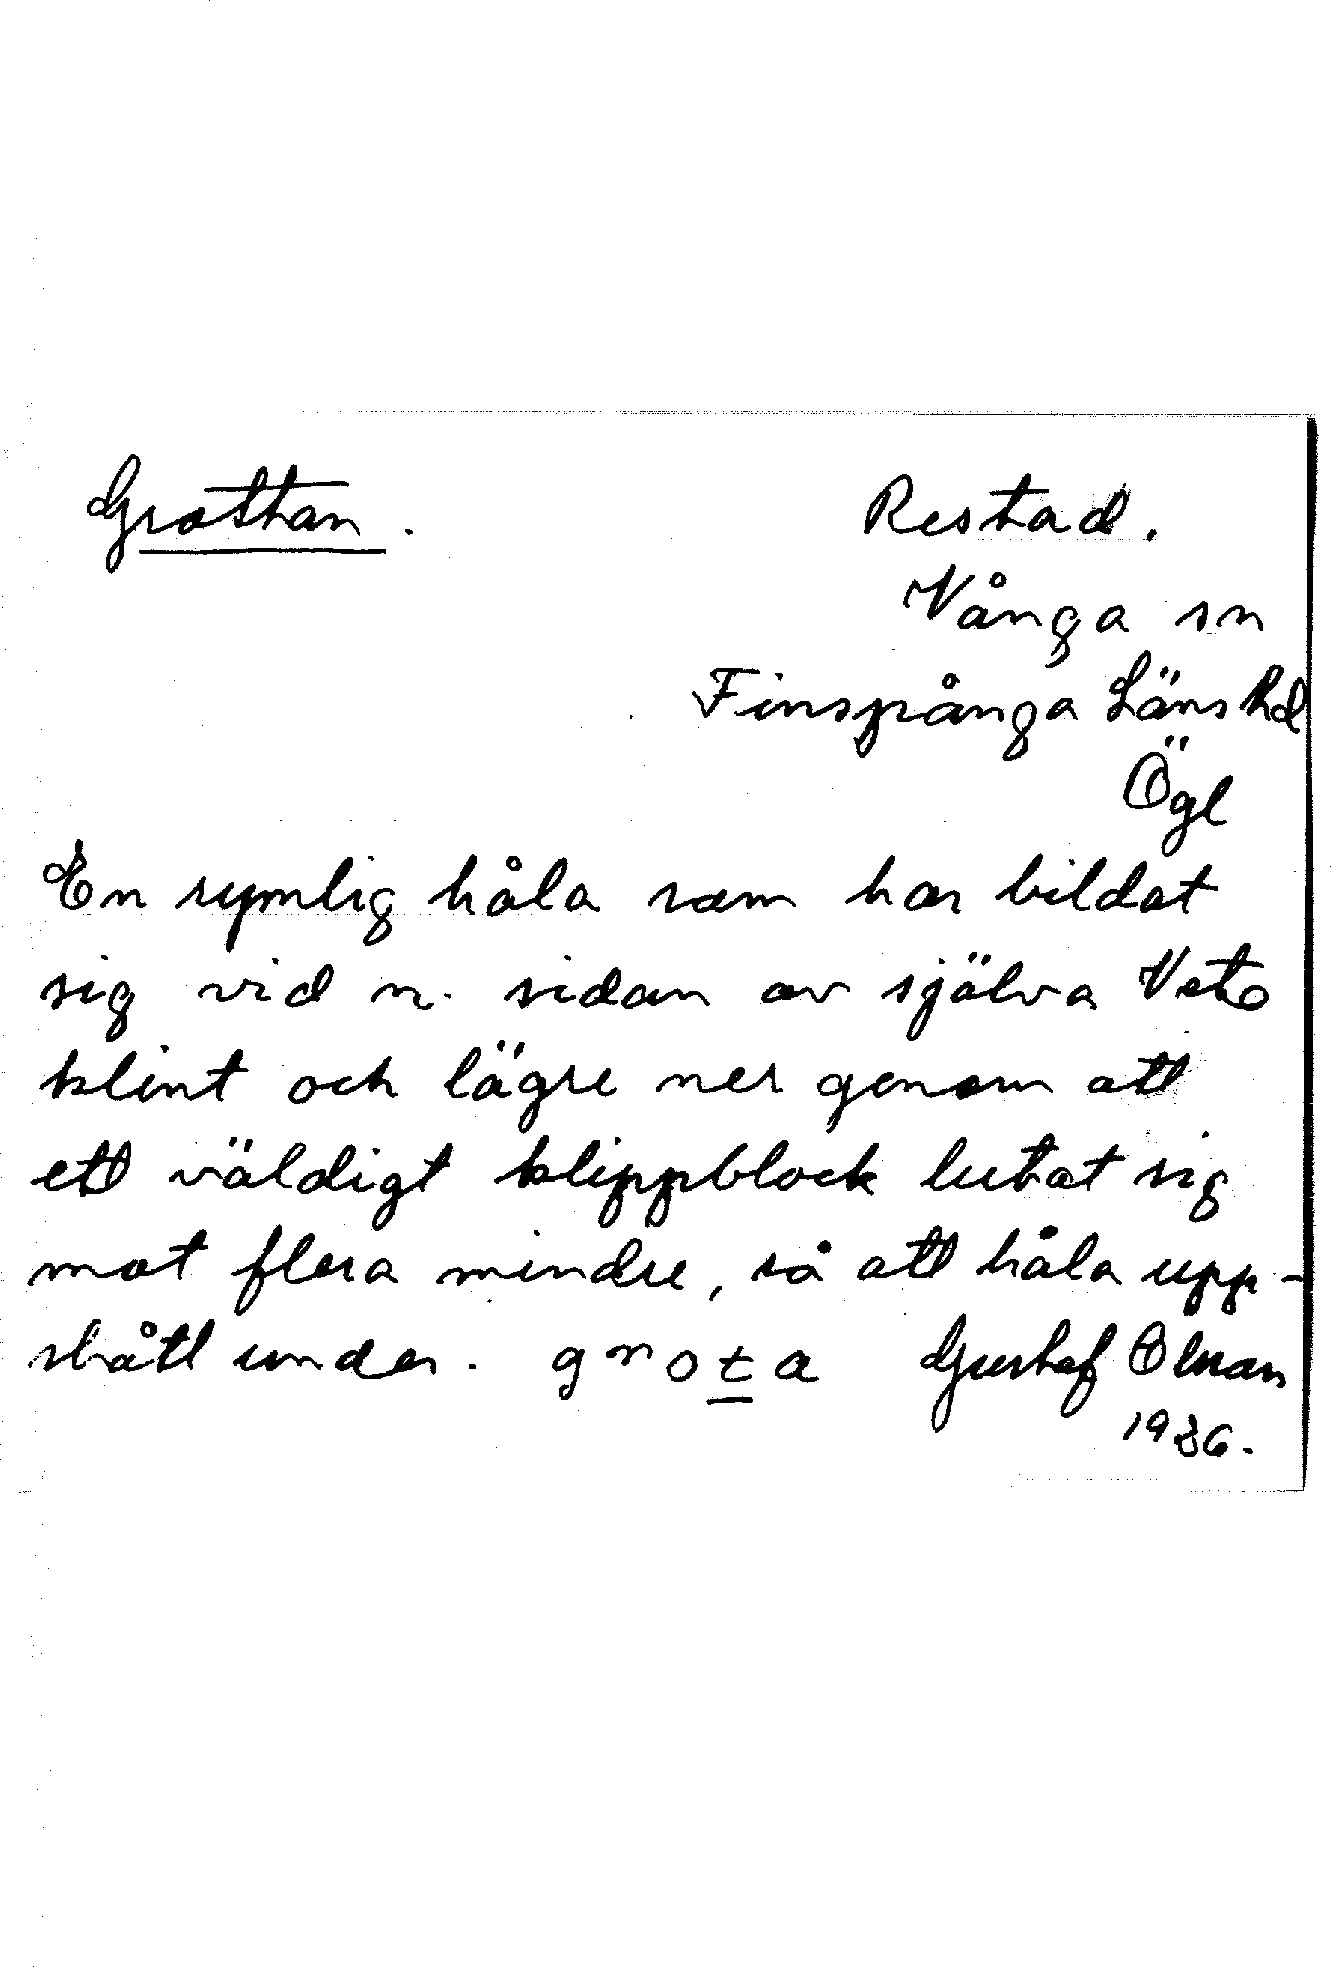 Grottan.
Restad.
Vånga sn
Finspånga Läns hd
Ögl
En rymlig håla som har bildat
sig vid n. sidan av själva Vete
klint och lägre ner genom att
ett väldigt klippblock lutat sig
mot flera mindre, så att håla upp-
stått under. grota Gustaf Olsson
1936.